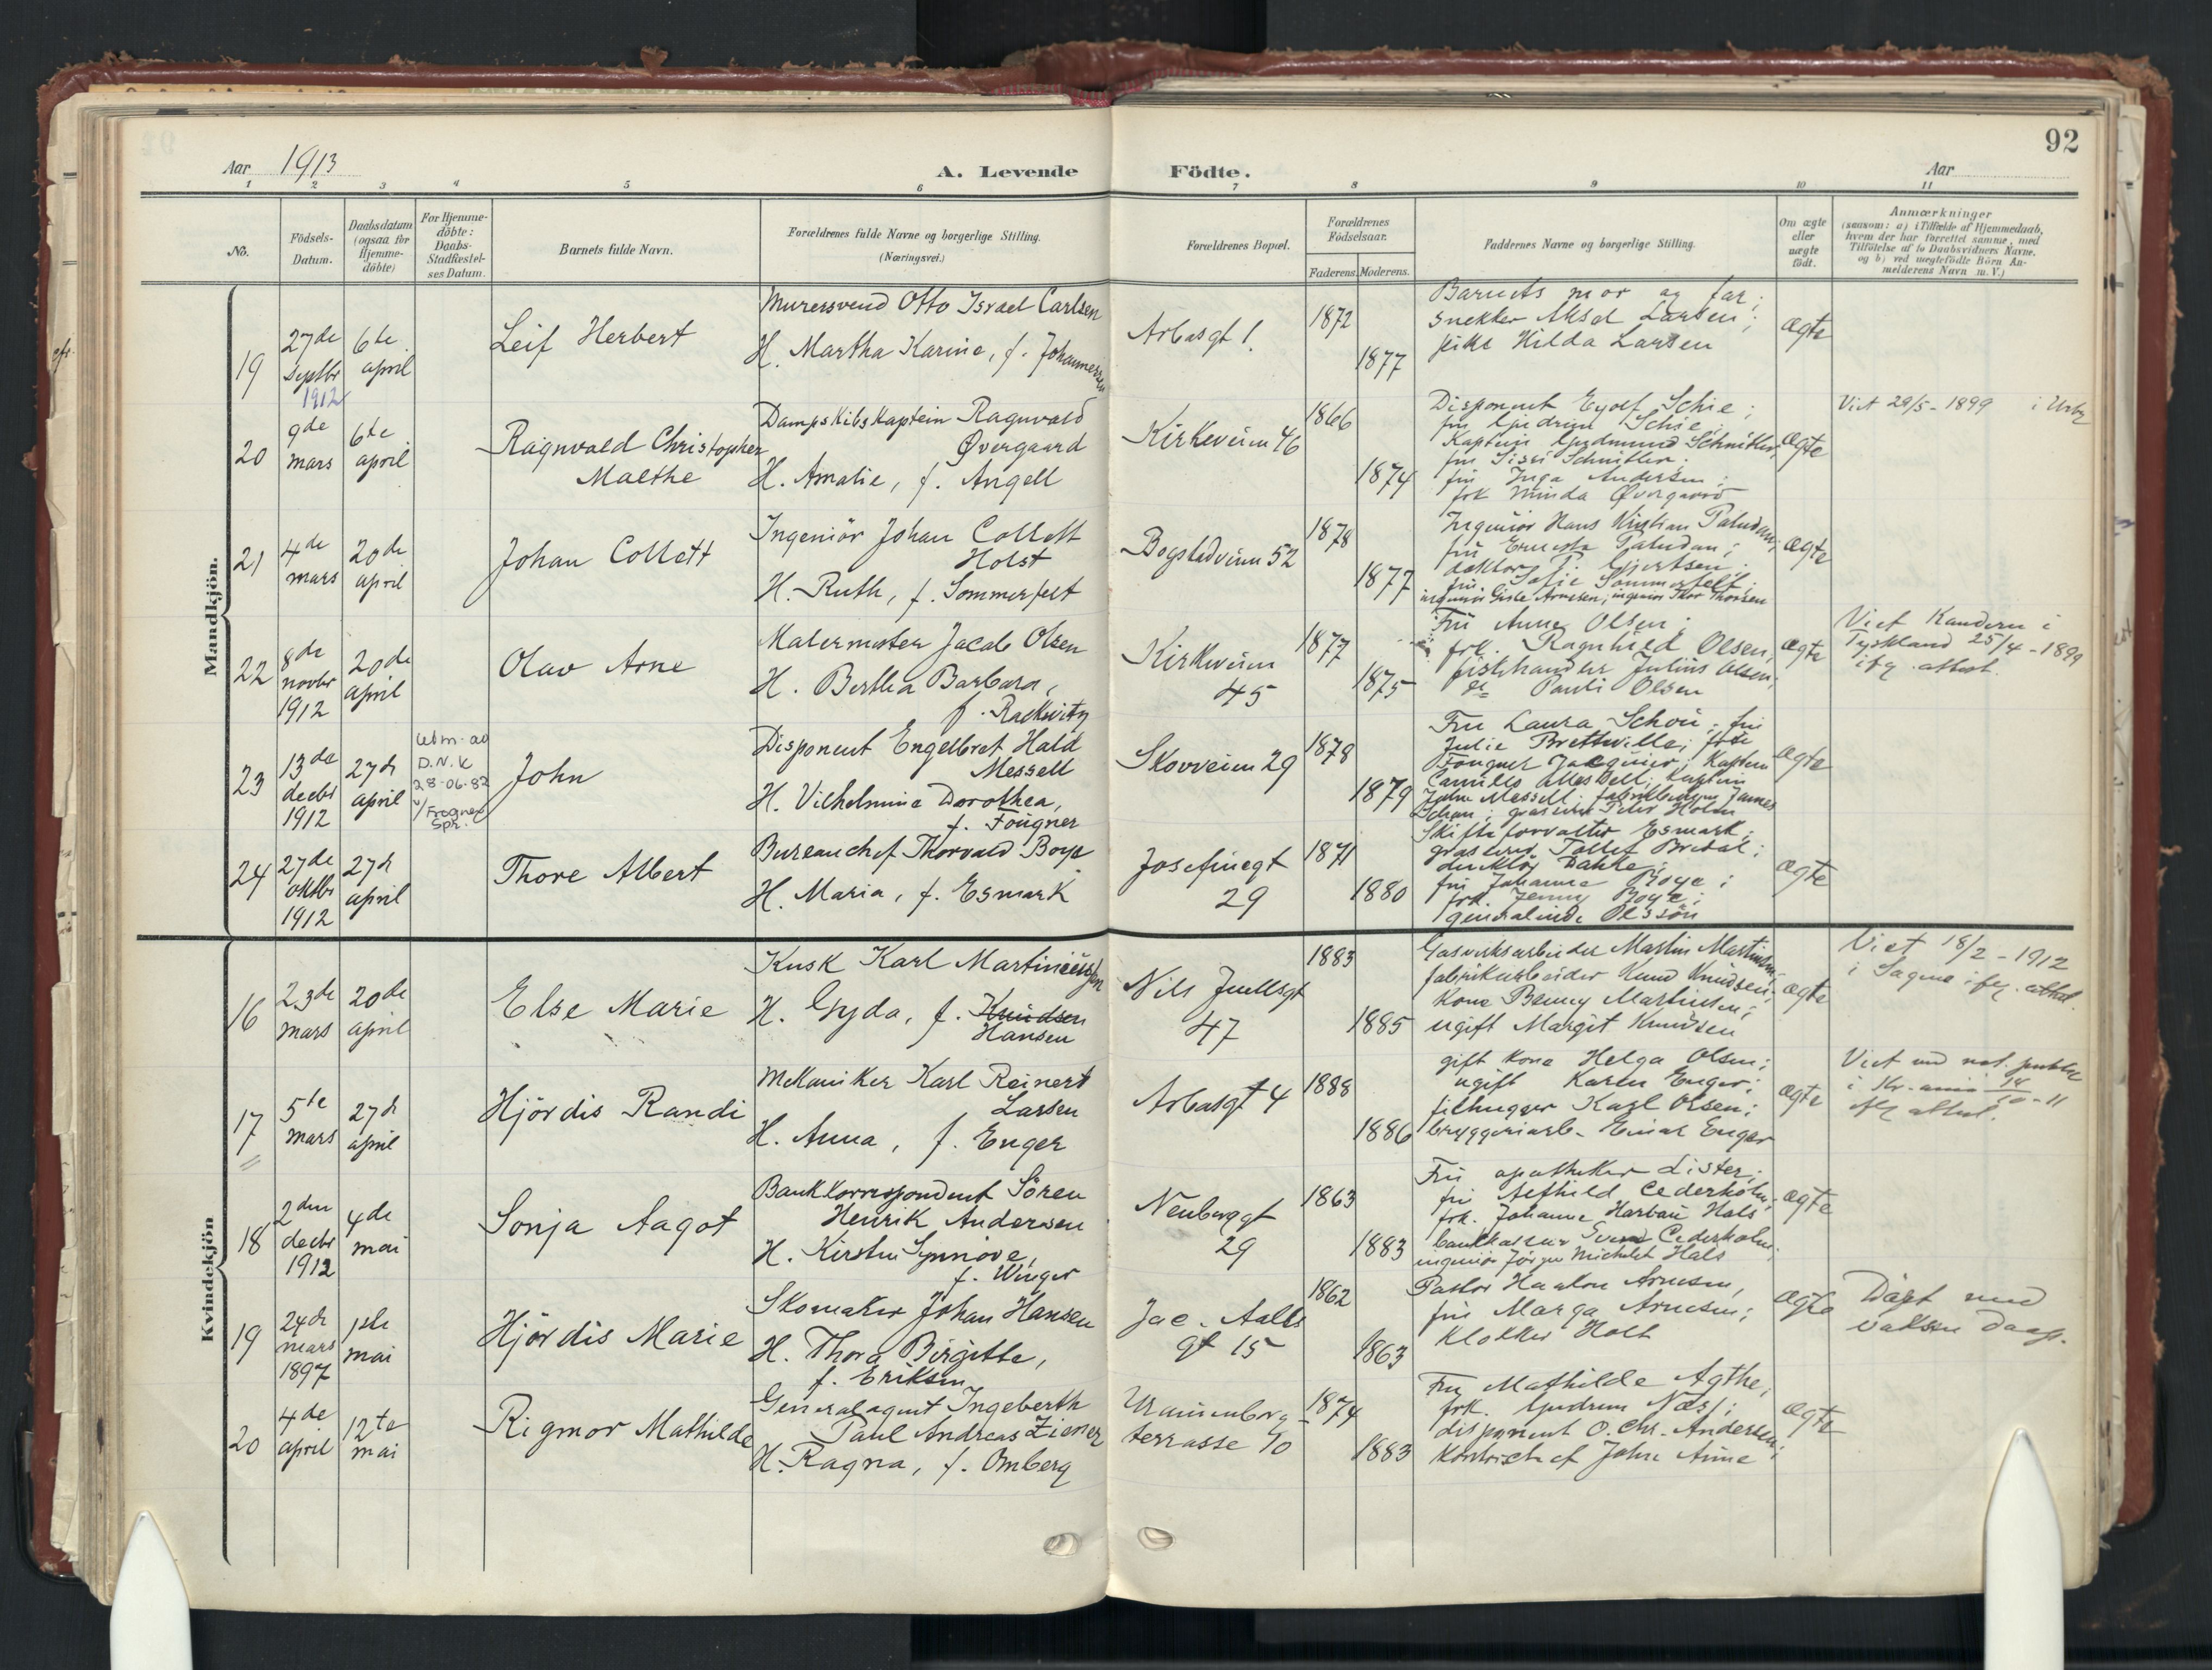 92
Aar 1913
A. Levende Födte.
Aar
1 2 3 4 5 6 7 8 9 10 11
No.
Födsels-
Datum.
Daabsdatum
(ogsaa for
Hjemme-
döbte)
For Hjemme-
döbte:
Daabs-
Stadfæstel-
ses Datum.
Barnets fulde Navn.
Forældrenes fulde Navne og borgerlige Stilling.
(Næringsvei.)
Forældrenes Bopæl.
Forældrenes
Födselsaar.
Faderens. Moderens.
Faddernes Navne og borgerlige Stilling.
Om ægte
eller
uægte
født.
Anmærkninger
(saasom: a) i Tilfælde af Hjemmedaab,
hvem der har forrettet samme, med
Tilföielse af to Daabsvidners Navne,
og b) ved uægtefödte Börn An-
melderens Navn m. V.)
Mandkjön.
19
27de
septbr
1912
6te
april
Leif Herbert
Murersvend Otto Israel Carlsen
H. Martha Karine, f. Johannessen
Arbosgt 1.
1872
1877
Barnets mor og far;
snekker Aksel Larsen;
pike Hilda Larsen
ægte
20
9de
mars
6te
april
Ragnvald Christopher
Malthe
Dampskibskaptein Ragnvald
Øvergaard
H. Amalie, f. Angell
Kirkeveien 46
1866
1874
Disponent Eyolf Schie;
fru Gudrun Schie;
Kaptein Gudmund Schnitler,
fru Sissi Schnitler;
fru Inga Andersen;
frk Minda Øvergaard
ægte
Viet 29/5 - 1899
21
4de
mars
20de
april
Johan Collett
Ingeniör Johan Collett
Holst
H. Ruth, f. Sommerfelt
Bogstadveien 52
1878
1877
Ingeniör Hans Kristian Paludan;
fru Ernesta Paludan;
doktor F. Gjertsen;
fru Sofie Sommerfelt;
ingeniör Gisle Arnesen; ingeniör Thor Thoresen
ægte
22
8de
novbr
1912
20de
april
Olav Arne
Malermester Jacob Olsen
H. Bertha Barbara,
f. Rackwitz
Kirkeveien
45
1877
1875
Fru Anna Olsen;
frk. Ragnhild Olsen,
fiskehandler Julius Olsen;
do Pauli Olsen
ægte
Viet Kandern i
Tyskland 25/4 - 1899
ifg. attest.
23
13de
decbr
1912
27de
april
Utm. av
D.N.K
28-06-82
v/Frogner
Spr.
John
Disponent Engelbret Hald
Messell
H. Vilhelmine Dorothea,
f. Fougner
Skovveien 29
1878
1879
Fru Laura Schou; fru
Julie Brettville; frk
Fougner Jacquier; Kaptein
Camillo Messell; Kaptein
John Messell; fabrikbestyrer James
Schou; grosserer Peter Holm
ægte
24
27de
oktbr
1912
27de
april
Thore Albert
Bureauchef Thorvald Boye
H. Maria, f. Esmark
Josefinegt
29
1871
1880
Skifteforvalter Esmark;
grosserer Tollef Bredal;
direktör Bakke;
fru Johanne Boye;
frk. Jenny Boye;
generalinde Olssön
ægte
Kvindekjön
16
23de
mars
20de
april
Else Marie
Kusk Karl Martiniussen
H. Gyda, f. Knudsen
Hansen
Nils Juellsgt
47
1883
1885
Gasverksarbeider Martin Martinsen;
fabrikarbeider Knud Knudsen;
Kone Benny Martinsen;
ugift Margit Knudsen
ægte
Viet 18/2 - 1912
i Sagene ifg. attest.
17
5te
mars
27de
april
Hjördis Randi
Mekaniker Karl Reinert
Larsen
H. Anna, f. Enger
Arbosgt 4
1888
1886
gift kone Helga Olsen;
ugift Karen Enger;
filhugger Karl Olsen;
bryggeriarb. Einar Enger
ægte
Viet ved not. publ.
i Kr.ania 14/10 - 11
ifg attest.
18
2den
decbr
1912
4de
mai
Sonja Aagot
Bankkorrespondent Sören
Henrik Andersen
H. Kirsten Synnöve,
f. Winger
Neuberggt
29
1863
1883
Fru apotheker Lister;
fru Aethild Cederholm;
frk. Johanne Harbau Hals
bankkasser Svend Cederholm;
ingeniör Jörgen Michelet Hals
ægte
19
24de
mars
1897
1ste
mai
Hjördis Marie
Skomaker Johan Hansen
H. Thora Birgitte,
f. Eriksen
Jac. Aalls
gt 15
1862
1863
Pastor Haakon Arnesen,
fru Marga Arnesen;
Klokker Holt
ægte
Döpt med
voksen daap.
20
4de
april
12te
mai
Rigmor Mathilde
Generalagent Ingeberth
Paul Andreas Ziener
H. Ragna, f. Omberg
Uranienborg
terrasse 10
1874
1883
Fru Mathilde Agthe;
frk. Gudrun Næss;
disponent O. Chr. Andersen;
Kontorchef John Aune
ægte